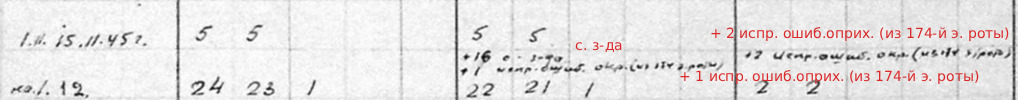 1.II. 15.II.45г. 5 5 5 5 + 2 испр. ошиб.оприх. (из 174-й э. роты)
с. з-да
+16 с. з-да +2 испр. ошиб. окр. (из 174 э/роты)
+1 испр. ошиб. окр. (из 174 э.роты) + 1 испр. ошиб.оприх. (из 174-й э. роты)
на 1. 12. 24 23 1 22 21 1 2 2